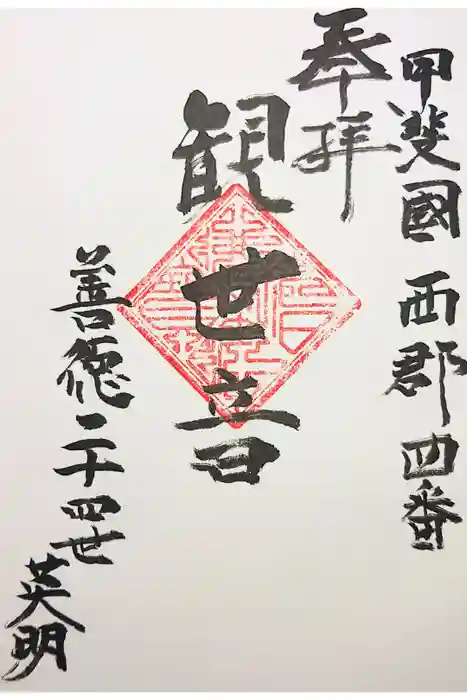 甲斐國西郡四番
奉拝
観世音
善徳二十四世
英明